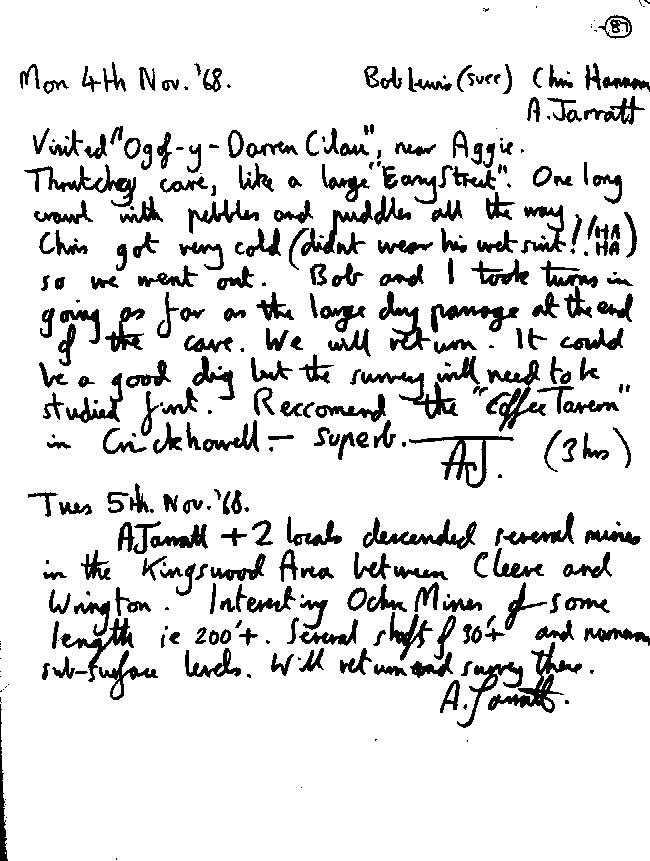 87
Mon 4th Nov. '68. Bob Lewis (succ) Chris Hannam
A. Jarratt
Visited "Ogof-y-Darren Cilau", near Aggie.
Thrutchey cave, like a large "Easy Street". One long
crawl with pebbles and puddles all the way.
Chris got very cold (didnt wear his wet suit!! HA HA)
so we went out. Bob and I took turns in
going as far as the large dry passage at the end
of the cave. We will return. It could
be a good dig but the survey will need to be
studied first. Reccomend the "Coffee Tavern"
in Crickhowell - superb. AJ. (3 hrs)
Tues 5th. Nov. '68.
A Jarratt + 2 locals descended several mines
in the Kingswood Area between Cleeve and
Wrington. Interesting Ochre Mines of some
length ie 200'+. Several shafts of 30'+ and
sub-surface levels. Will return and survey these.
A. Jarratt.